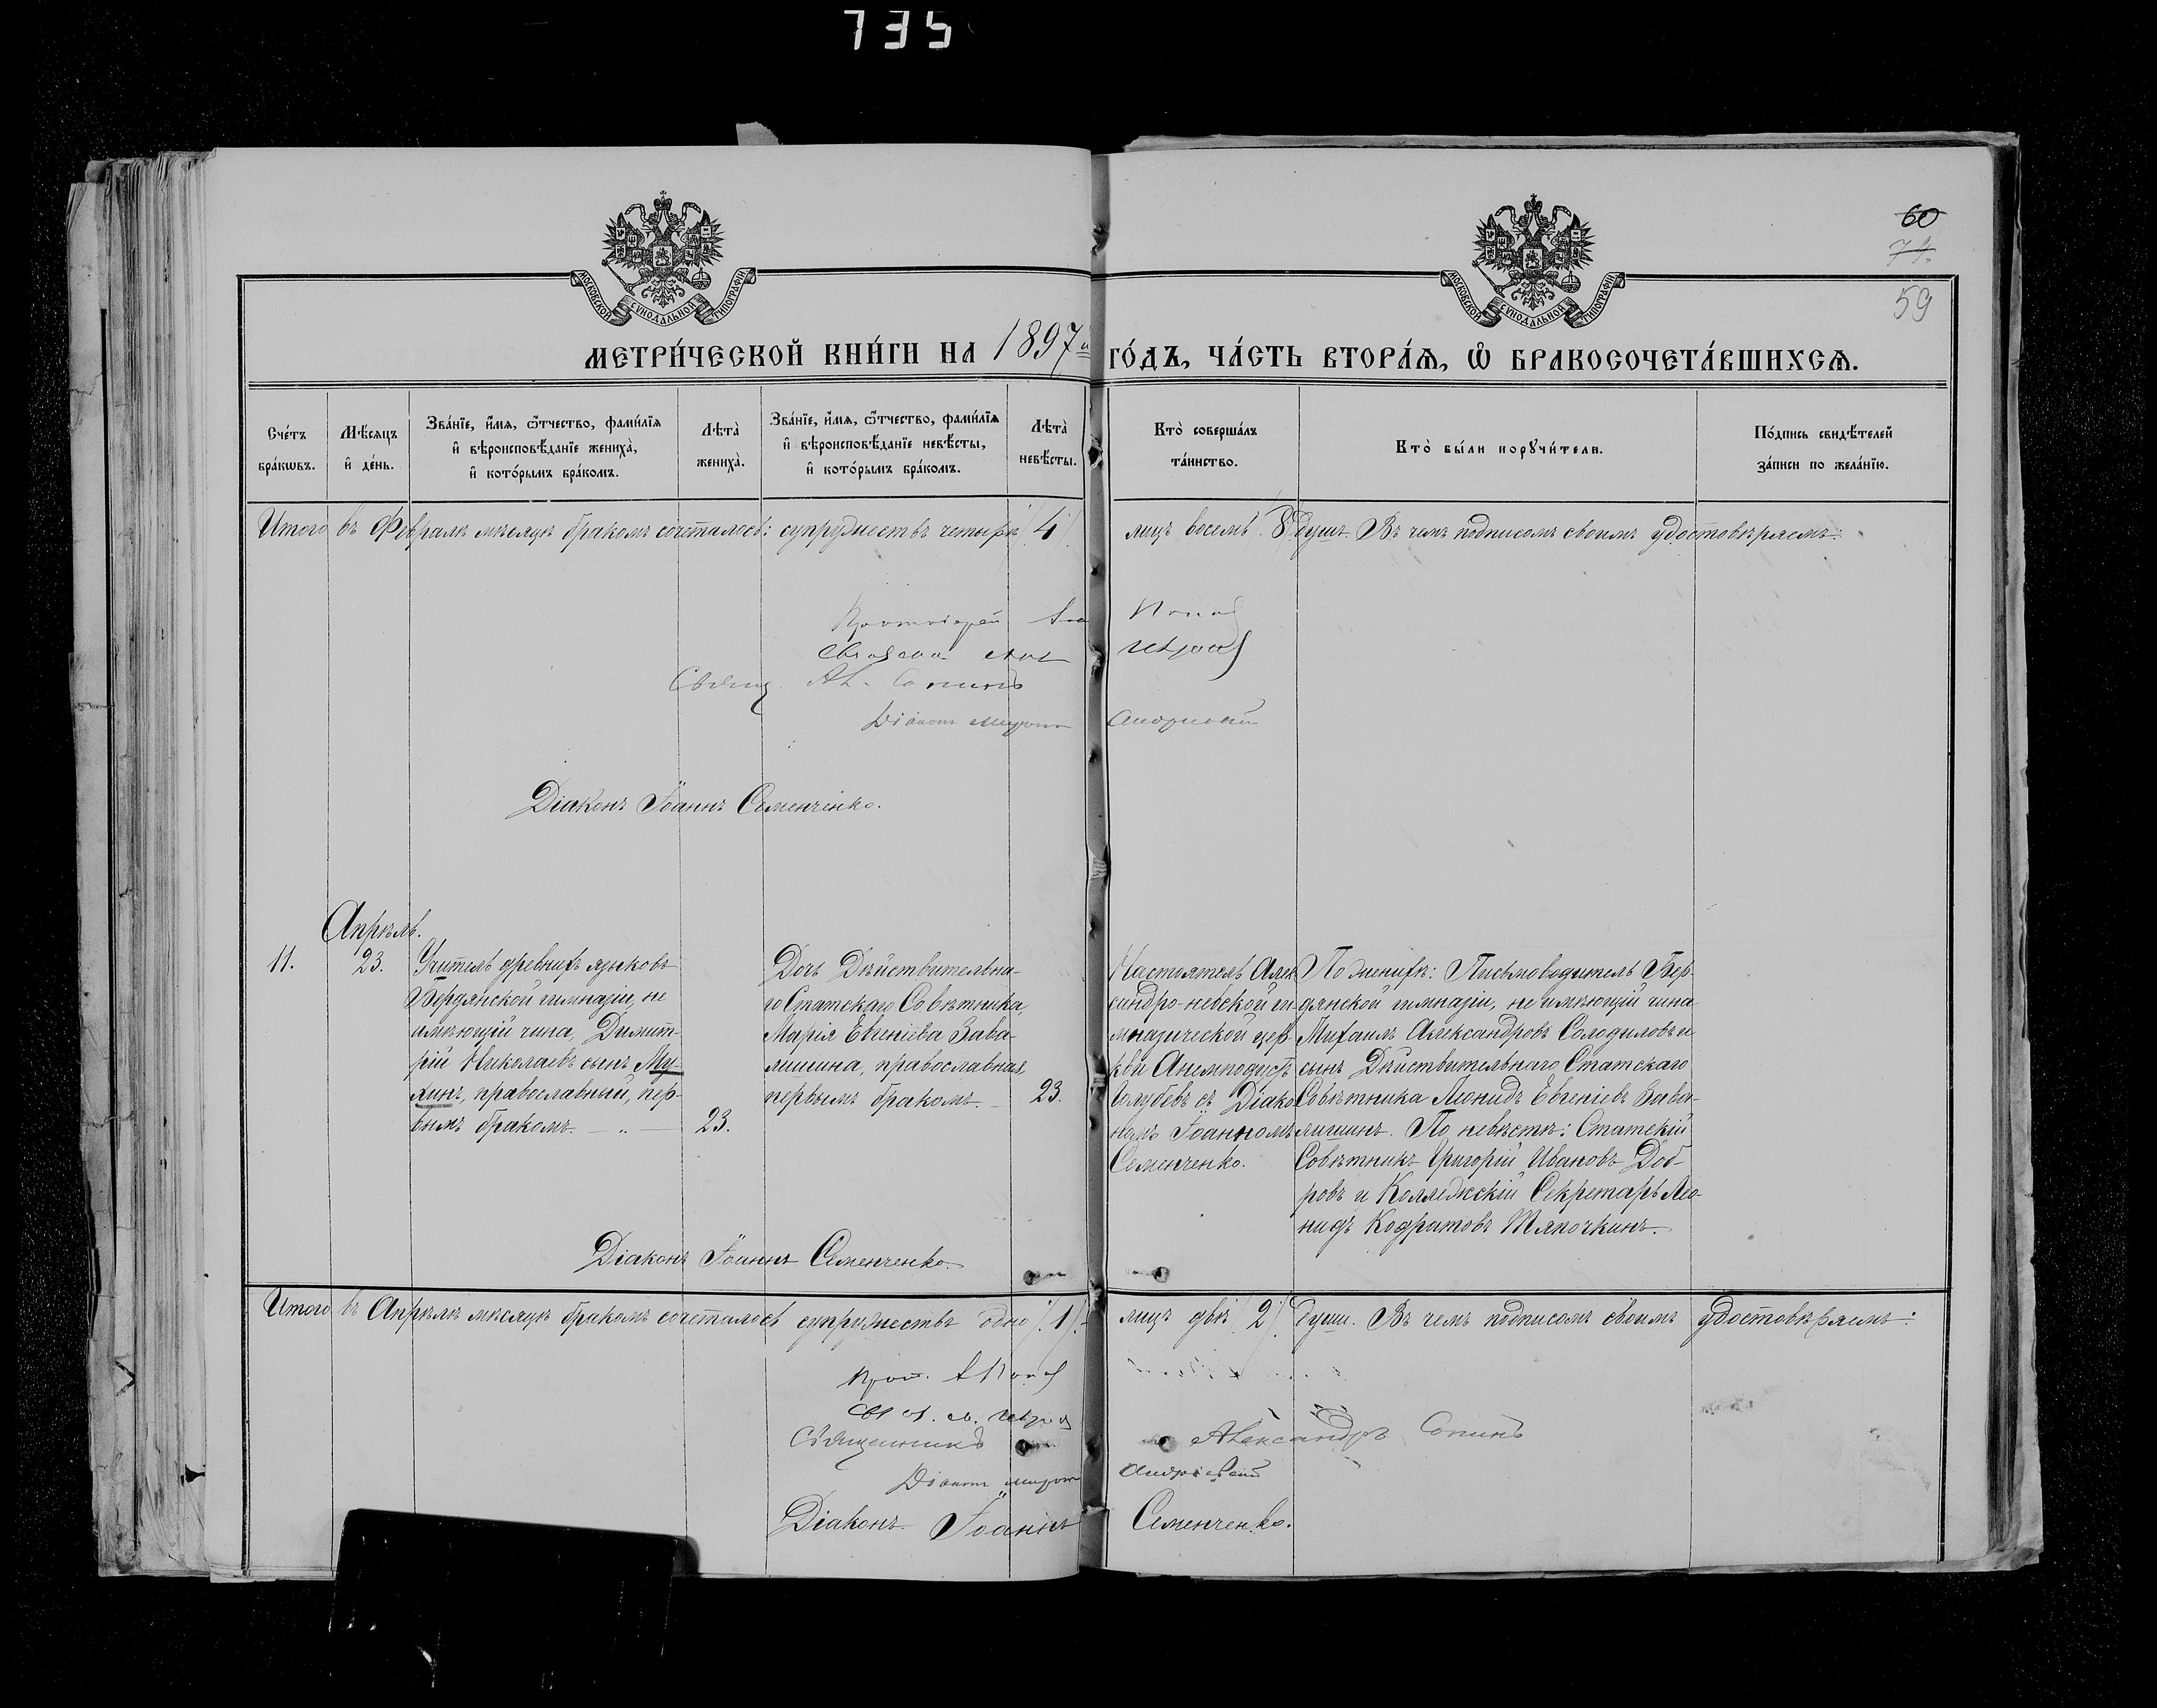 735
60
71.
59
МОСКОВСКОЙ СУНОДАЛЬНОЙ ТИПОГРАФІИ
МОСКОВСКОЙ СУНОДАЛЬНОЙ ТИПОГРАФІИ
МЕТРИ́ЧЕСКОЙ КНИ́ГИ НА 1897й ГО́ДЪ, ЧА́СТЬ ВТОРА́Я, Ѡ БРАКОСОЧЕТА́ВШИХСЯ.
Сче́тъ
бра́кѡвъ.
Мѣ́сяцъ
и де́нь.
Зва́нїе, и́мя, ѻ҆́тчество, фами́лїя
и вѣроисповѣ́данїе жениха̀,
и кото́рымъ бра́комъ.
Лѣта̀
жениха̀.
Зва́нїе, и́мя, ѻ҆́тчество, фами́лїя
и вѣроисповѣ́данїе невѣ́сты,
и кото́рымъ бра́комъ.
Лѣта̀
невѣ́сты.
Кто̀ соверша́лъ
та́инство.
Кто̀ бы́ли порꙋчи́тели.
По́дпись свидѣ́телей
за́писи по жела́нїю.
Итого въ Февралѣ мѣсяцѣ бракомъ сочеталось: супружествъ четыре /4/ лицъ восемь /8/ душъ. Въ чемъ подписомъ своимъ удостовѣряемъ:
Протоіерей Попов
Свящ. Ал. Сопинъ
Діаконъ
Діаконъ Іоаннъ Семенченко.
Апрѣль.
11.
23.
Учитель древнихъ языковъ
Бердянской гимназіи, не
имѣющій чина, Димит-
рій Николаевъ сынъ Му-
хинъ, православный, пер-
вымъ бракомъ. — „ —
23.
Дочь Дѣйствительна-
го Статскаго Совѣтника,
Марія Евгеніева Зава-
лишина, православная,
первымъ бракомъ. —
23.
Настоятель Алек-
сандро-невской ги-
мназической цер-
кви Анемподистъ
Голубевъ съ Діако-
номъ Іоанномъ
Семенченко.
По женихѣ: Письмоводитель Бер-
дянской гимназіи, не имѣющій чина
Михаилъ Александровъ Солодиловъ и
сынъ Дѣйствительнаго Статскаго
Совѣтника Леонидъ Евгеніевъ Зава-
лишинъ. По невѣстѣ: Статскій
Совѣтникъ Григорій Ивановъ Доб-
ровъ и Коллежскій Секретарь Лео-
нидъ Кодратовъ Тяпочкинъ.
Діаконъ Іоаннъ Семенченко.
Итого въ Апрѣлѣ мѣсяцѣ бракомъ сочеталось супружествъ одно /1/. лицъ двѣ /2/ души. Въ чемъ подписомъ своимъ удостовѣряемъ:
Прот. А Попов
Священникъ Александръ Сопинъ
Діаконъ
Діаконъ Іоаннъ Семенченко.